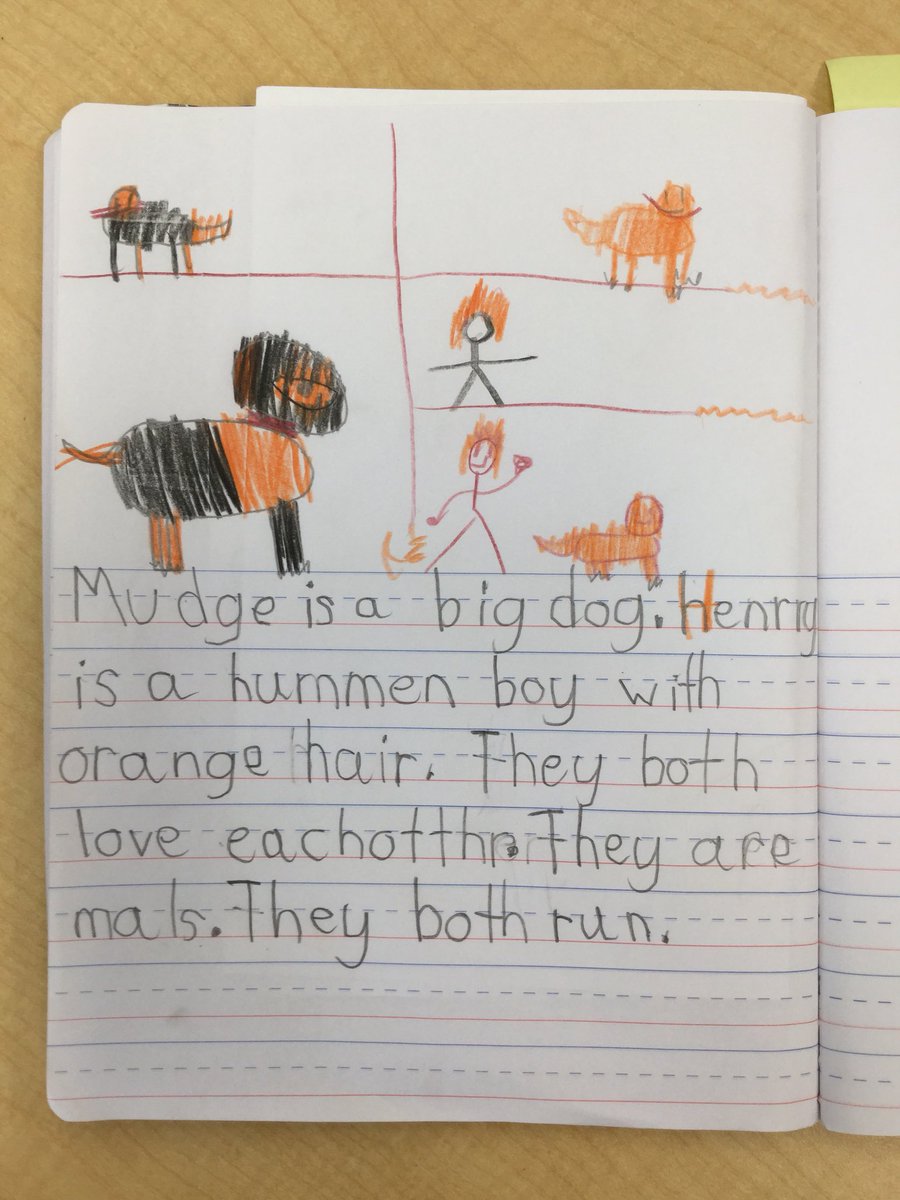 Mudge is a big dog. Henrry
is a hummen boy with
orange hair. They both
love eachotthr. They are
mals. They both run.